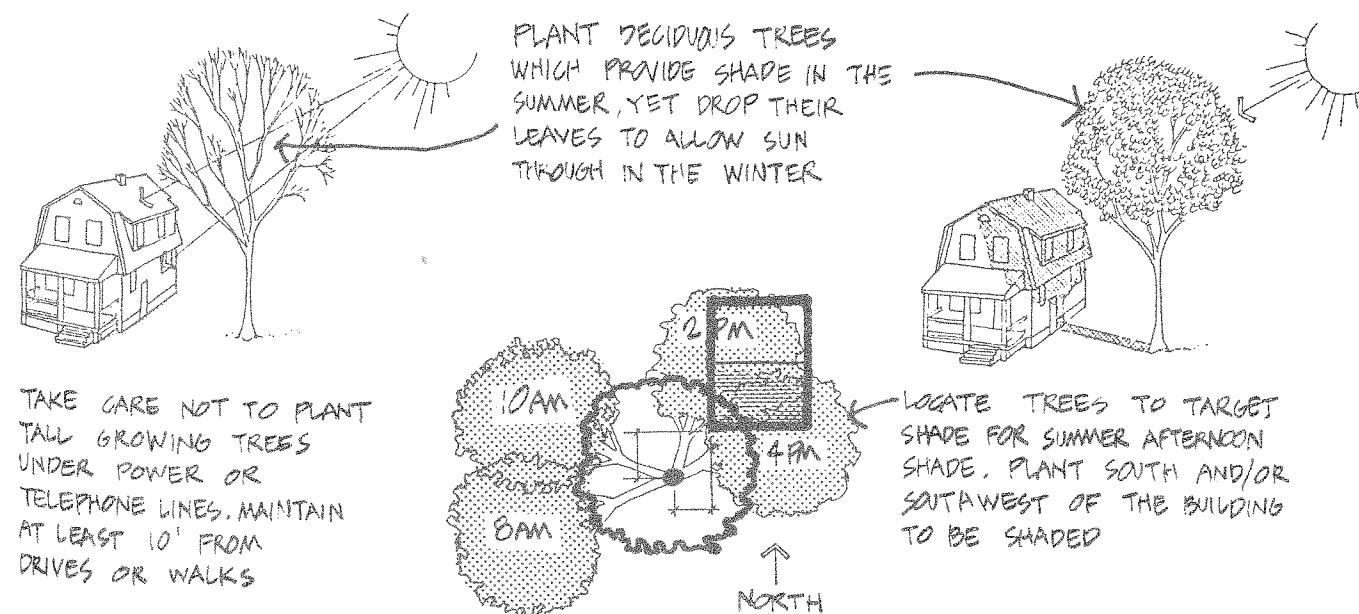 PLANT DECIDUOUS TREES
WHICH PROVIDE SHADE IN THE
SUMMER, YET DROP THEIR
LEAVES TO ALLOW SUN
THROUGH IN THE WINTER
TAKE CARE NOT TO PLANT
TALL GROWING TREES
UNDER POWER OR
TELEPHONE LINES. MAINTAIN
AT LEAST 10' FROM
DRIVES OR WALKS
2 PM
10 AM
4 PM
8 AM
NORTH
LOCATE TREES TO TARGET
SHADE FOR SUMMER AFTERNOON
SHADE. PLANT SOUTH AND/OR
SOUTHWEST OF THE BUILDING
TO BE SHADED